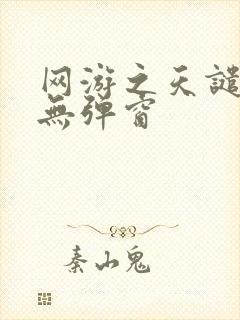 网游之天谴
無弹窗
秦山鬼